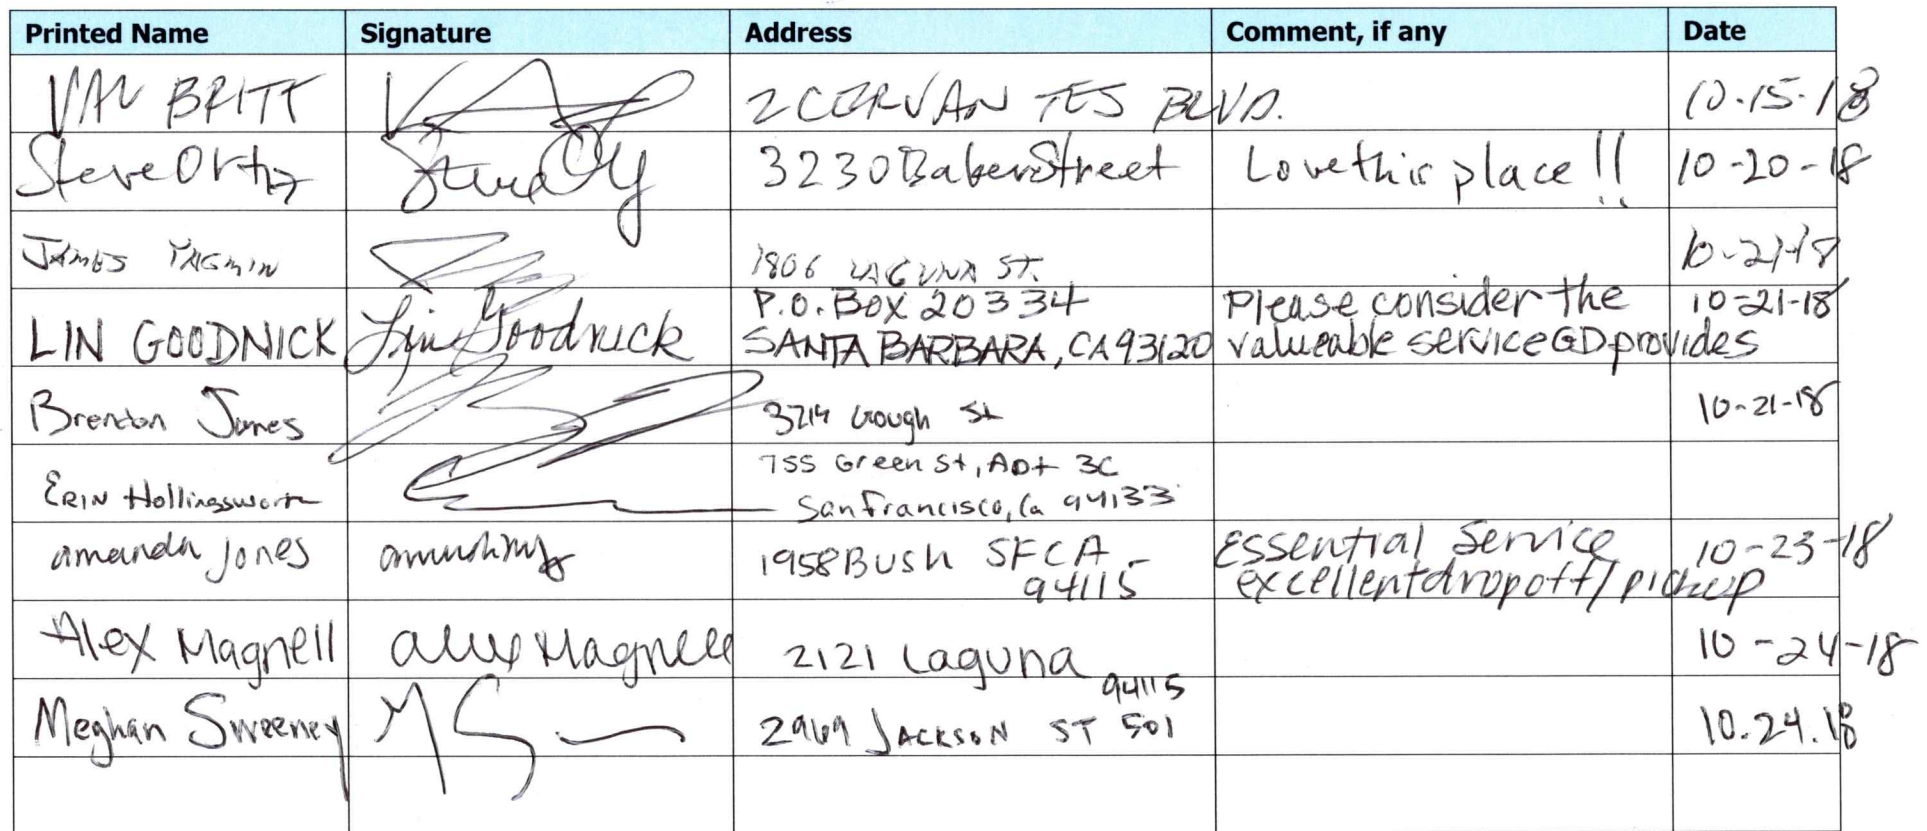 Printed Name Signature Address Comment, if any Date
VAL BRITT 2 CERVANTES BLVD. 10-15-18
Steve Ortiz 3230 Baker Street Love this place!! 10-20-18
JAMES YASMIN 1806 LAGUNA ST. 10-21-18
LIN GOODNICK Lin Goodnick P.O. BOX 20334 Please consider the 10-21-18
SANTA BARBARA, CA 93120 valueable service GD provides
Brenton Jones 3214 Gough St 10-21-18
ERIN Hollingsworth 755 Green St, Apt 3C
San Francisco, Ca 94133
amanda jones 1958 BUSH SF CA Essential Service 10-23-18
94115 excellent dropoff/pickup
Alex Magnell Alex Magnell 2121 Laguna 10-24-18
94115
Meghan Sweeney MS 2969 JACKSON ST 501 10.24.18